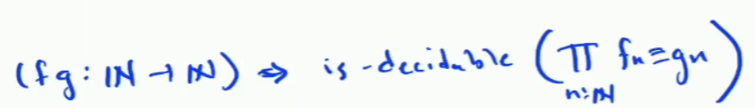 (f g : ℕ → ℕ) ⇒ is-decidable (∏ n:ℕ fn = gn)